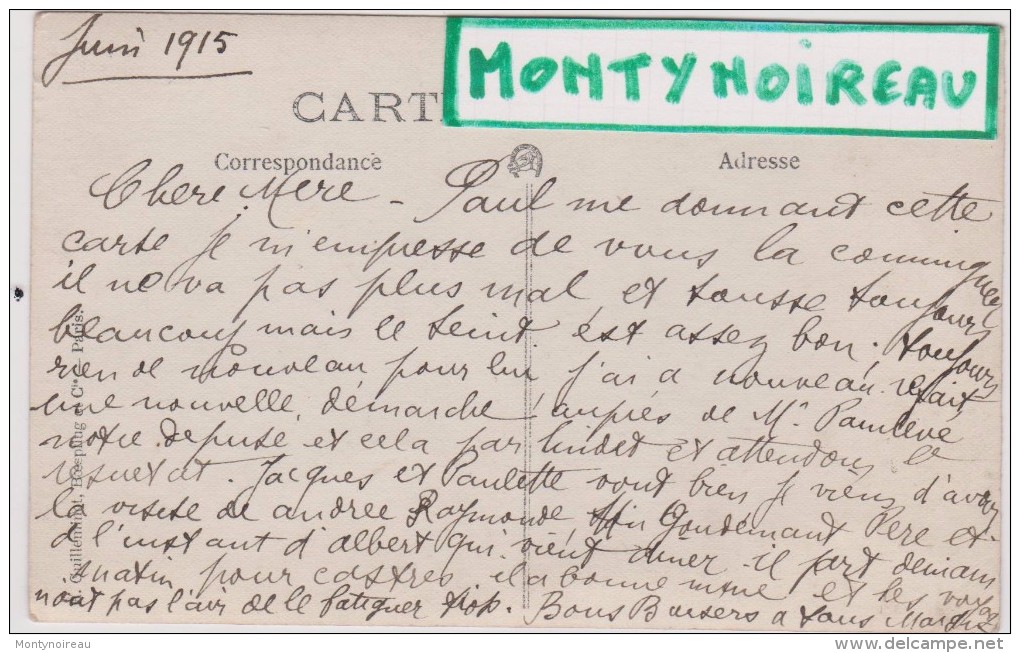 Juin 1915
MONTYNOIREAU
CART
Correspondance
Adresse
Chere Mere - Paul me donnant cette
carte je m'empresse de vous la communiquer
il ne va pas plus mal et tousse toujours
beaucoup mais le teint est assez bon. toujours
rien de nouveau pour lui j'ai a nouveau refait
une nouvelle démarche auprés de Mr Painlevé
notre deputé et cela par et attendons le
resultat. Jacques et Paulette vont bien je viens d'avoir
la visite de andree Raymonde Père et
à l'instant d'albert qui vient diner il part demain
matin pour castres il a bonne mine et les voyages
n'ont pas l'air de le fatiguer trop. Bons Baisers a tous
Guilleminot, Bœspflug et Cie - Paris.
Montynoireau
www.delcampe.net